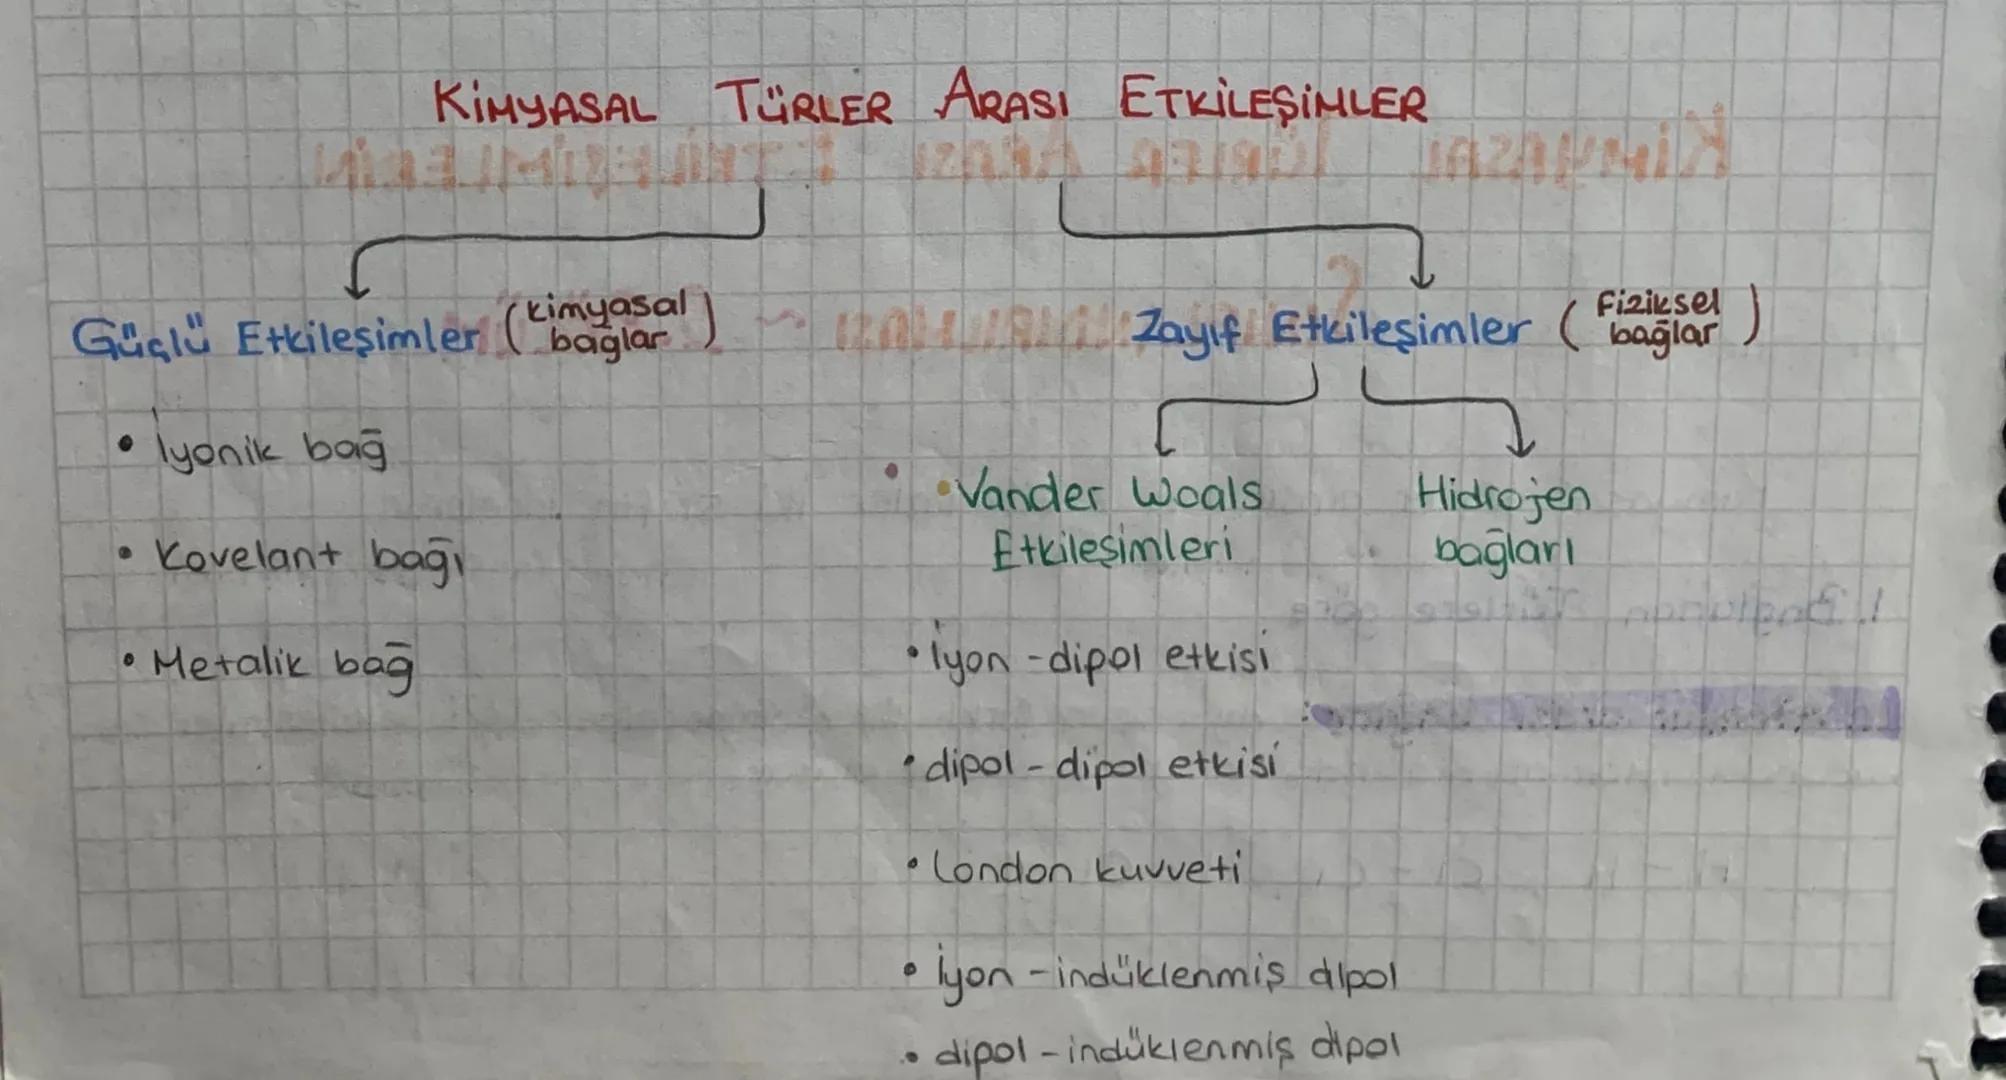 KİMYASAL TÜRLER ARASI ETKİLEŞİMLER
Güçlü Etkileşimler (kimyasal bağlar)
• İyonik bağ
• Kovelant bağı
• Metalik bağ
Zayıf Etkileşimler (Fiziksel bağlar)
• Vander Woals
Etkileşimleri
Hidrojen
bağları
• İyon - dipol etkisi
• dipol - dipol etkisi
• London kuvveti
• İyon - indüklenmiş dipol
• dipol - indüklenmiş dipol